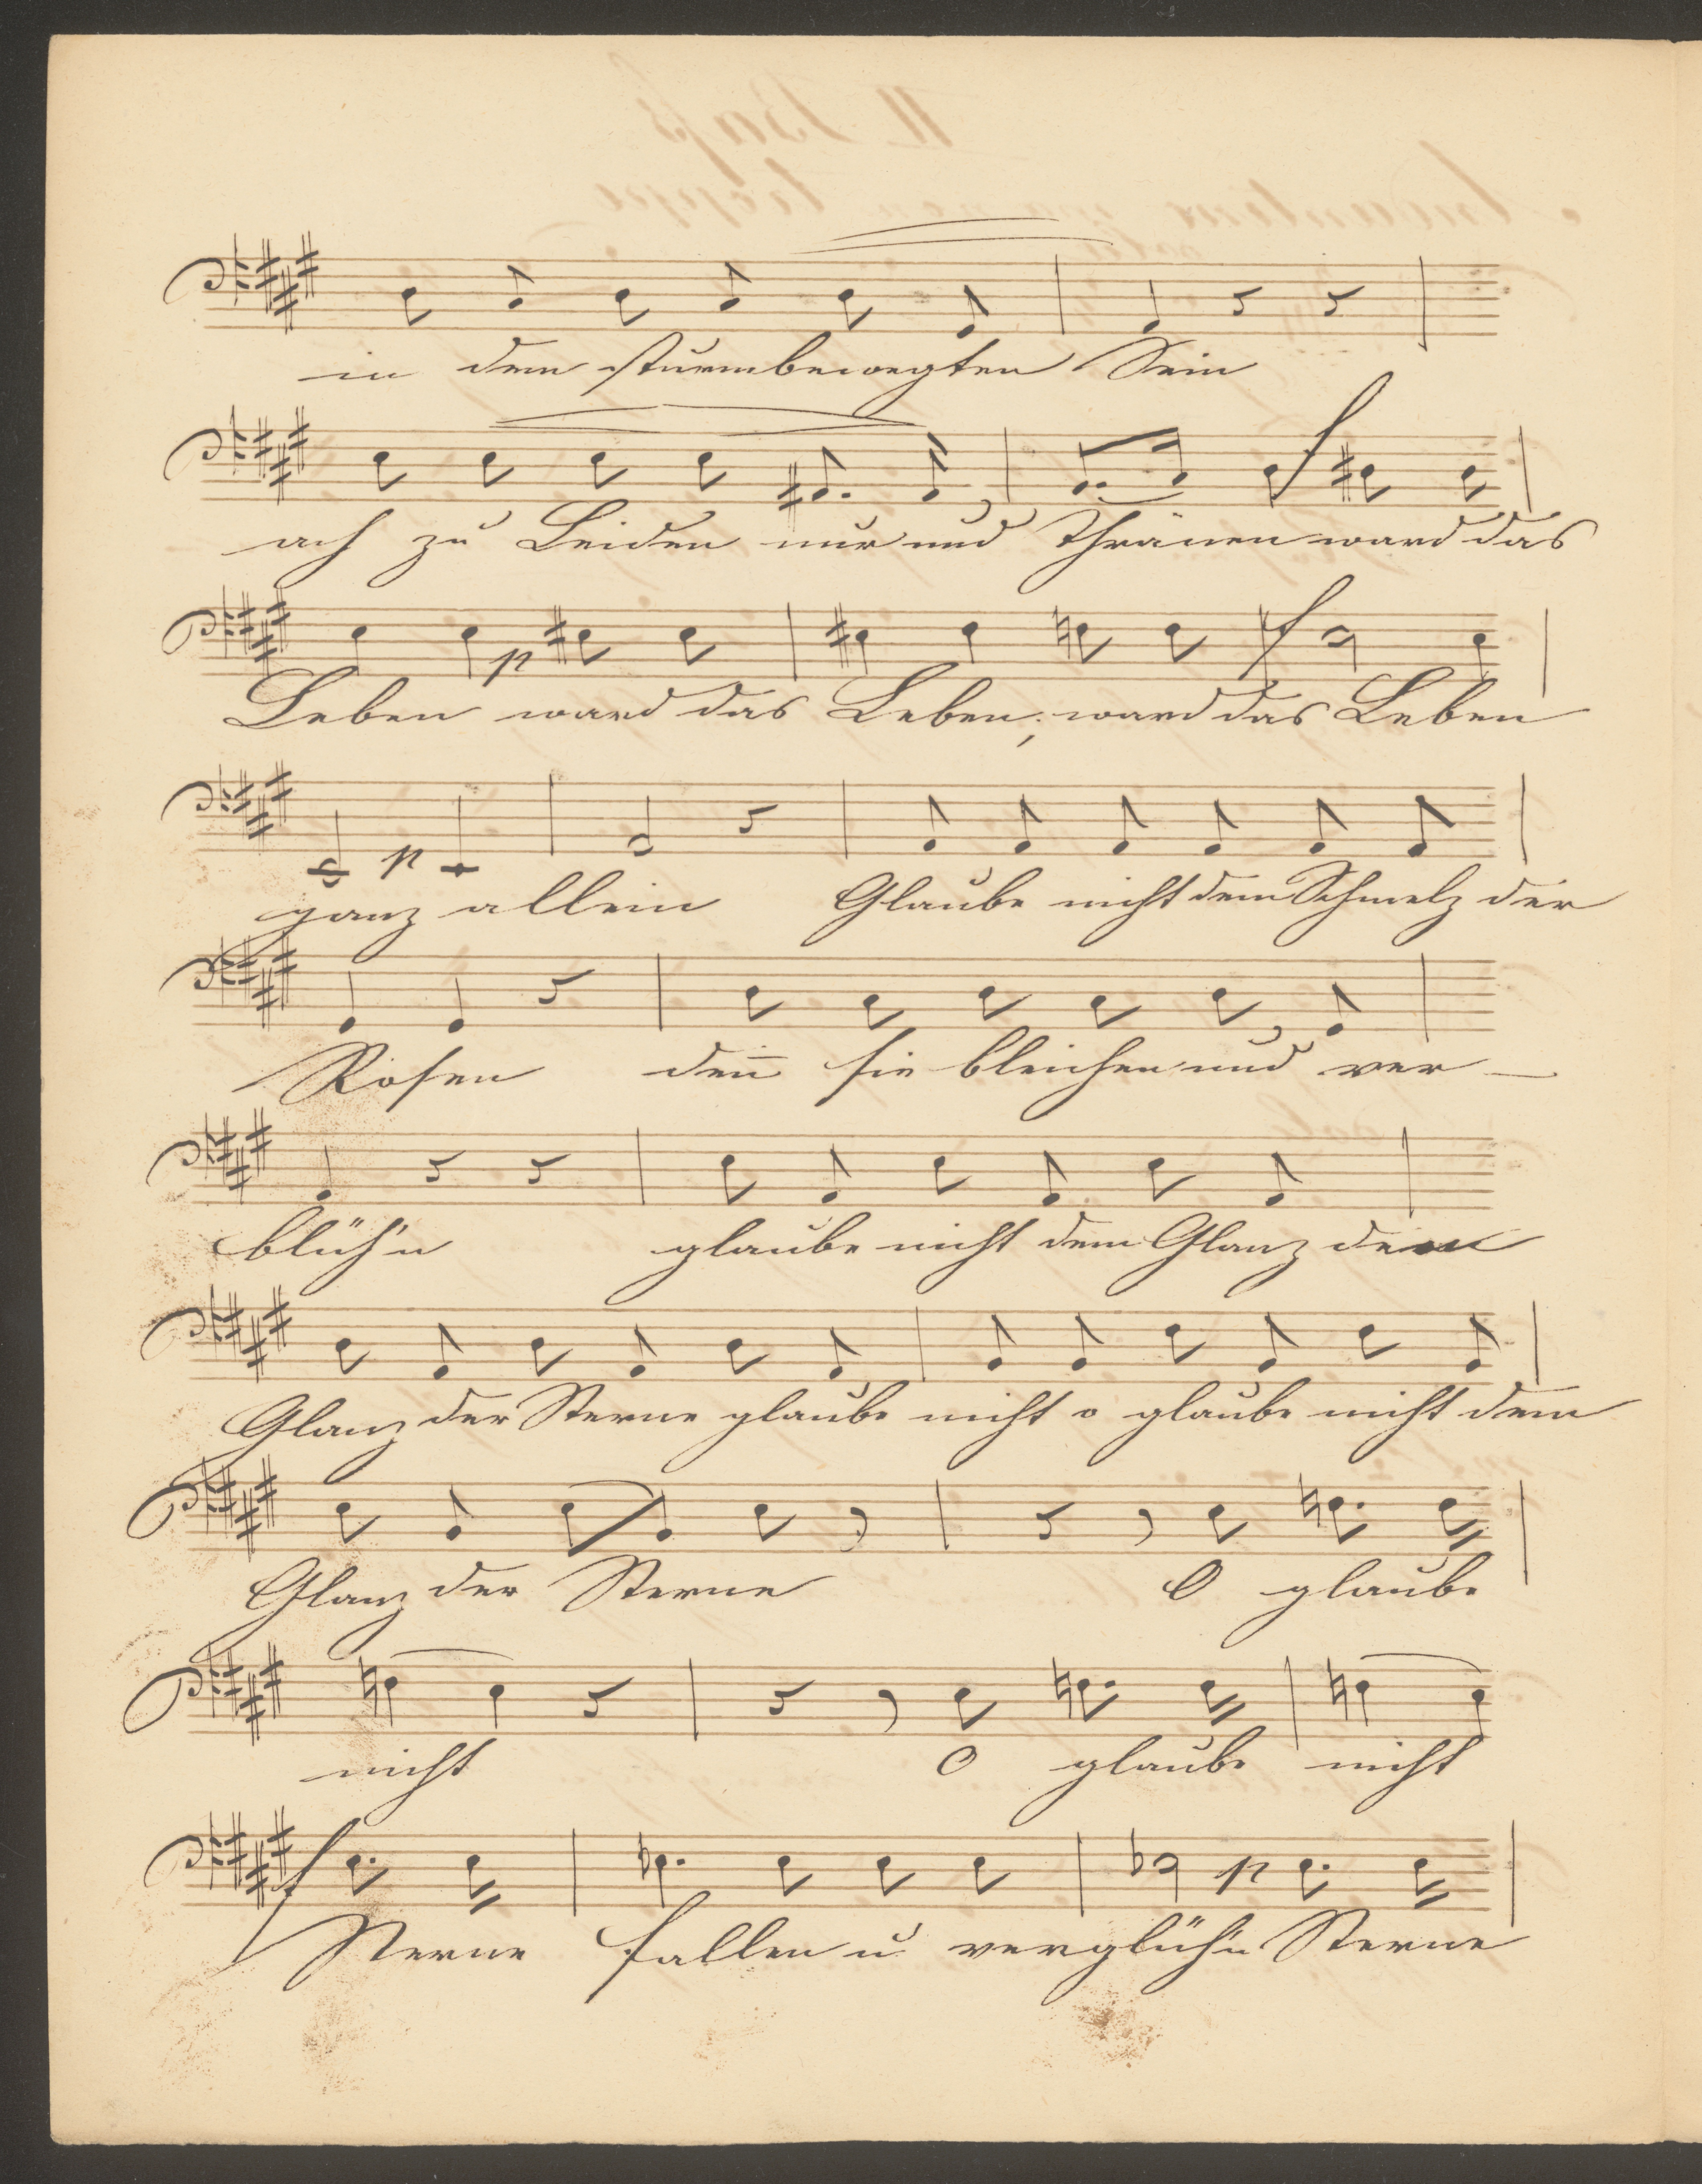 in dem sturmbewegten Sein
ach zu Leiden nur und Thränen ward das
p
Leben ward das Leben, ward das Leben
p
ganz allein Glaube nicht dem Schmelz der
Rosen den̄ sie bleichen und ver-
blüh'n glaube nicht dem Glanz der
Glanz der Sterne glaube nicht o glaube nicht dem
Glanz der Sterne O glaube
nicht O glaube nicht
f p
Sterne fallen u verglüh'n Sterne